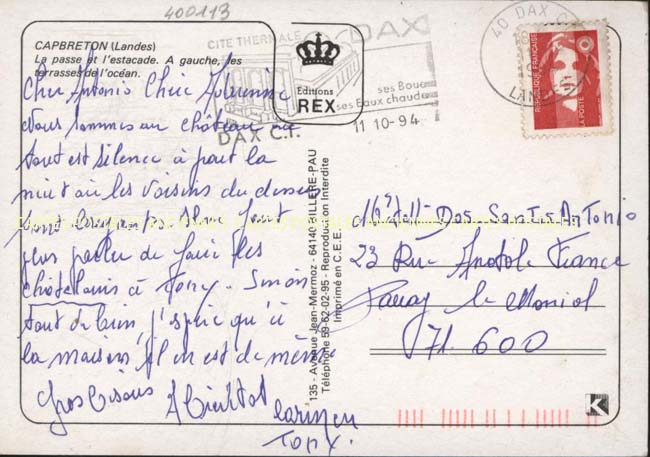 400113
CAPBRETON (Landes)
La passe et l'estacade. A gauche, les
terrasses de l'océan.
Cher Antonio Chère
nous sommes au château ou
tout est silence à part la
nuit où les voisins du dessus
sont
plus parler de faire les
chatelains à Tony. Sinon
tout va bien, j'espère qu'à
la maison, il en est de même
Gros bisous A bientôt
Tony.
CITE THERMALE
DAX
ses Boues
ses Eaux chaudes
DAX C.T.
11 10-94
40 DAX C.T.
LANDES
Editions
REX
RÉPUBLIQUE FRANÇAISE
LA POSTE
135 - Avenue Jean-Mermoz - 64140 BILLERE-PAU
Téléphone 59-62-02-95 - Reproduction Interdite
Imprimé en C.E.E.
Dos Santos Antonio
23 Rue Anatole France
Paray le Monial
71 600
K